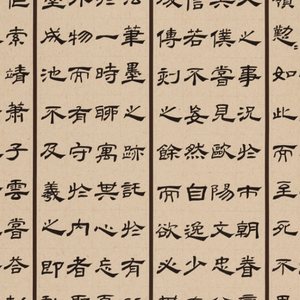 懃如此而至死不
之事況於市朝眷
其僕嘗見歐陽文忠
信若不妄然自逸少
傳刻之餘而欲必
筆墨之跡託於有
一時聊寓其心忘
不物而有守於內者
成池不及羲之即
索靖蕭子雲嘗答